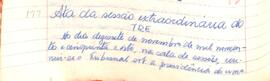 177 Ata da sessão extraordinária do
TRE.
Ao dia dezenove de novembro de mil novecen
tos e cinquenta e oito, na sala de sessões, reu
niu-se o Tribunal sob a presidência do